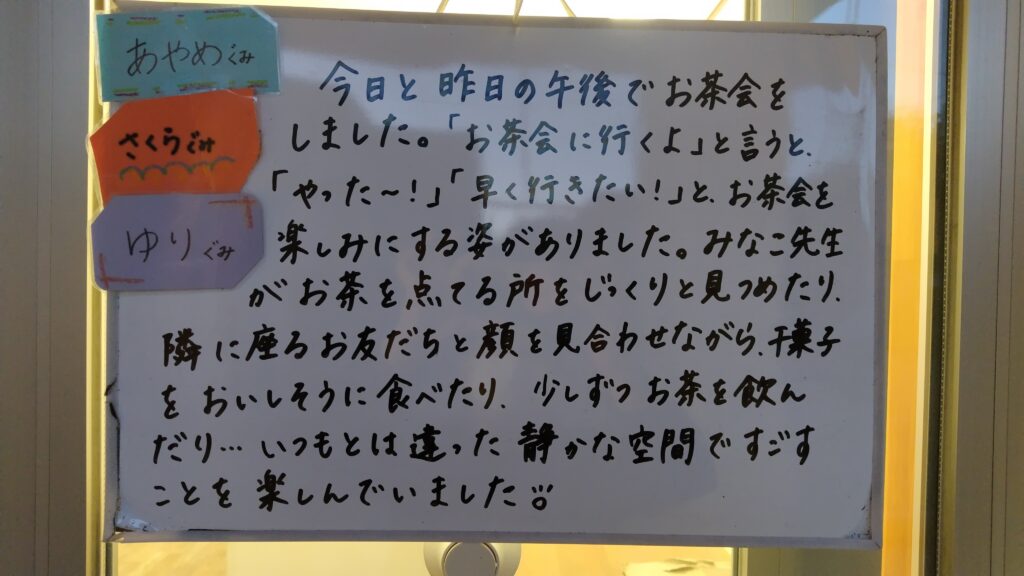 あやめぐみ
さくらぐみ
ゆりぐみ
今日と昨日の午後でお茶会を
しました。「お茶会に行くよ」と言うと、
「やった～!」「早く行きたい!」と、お茶会を
楽しみにする姿がありました。みなこ先生
がお茶を点てる所をじっくりと見つめたり、
隣に座るお友だちと顔を見合わせながら、干菓子
をおいしそうに食べたり、少しずつお茶を飲ん
だり…いつもとは違った静かな空間ですごす
ことを楽しんでいました